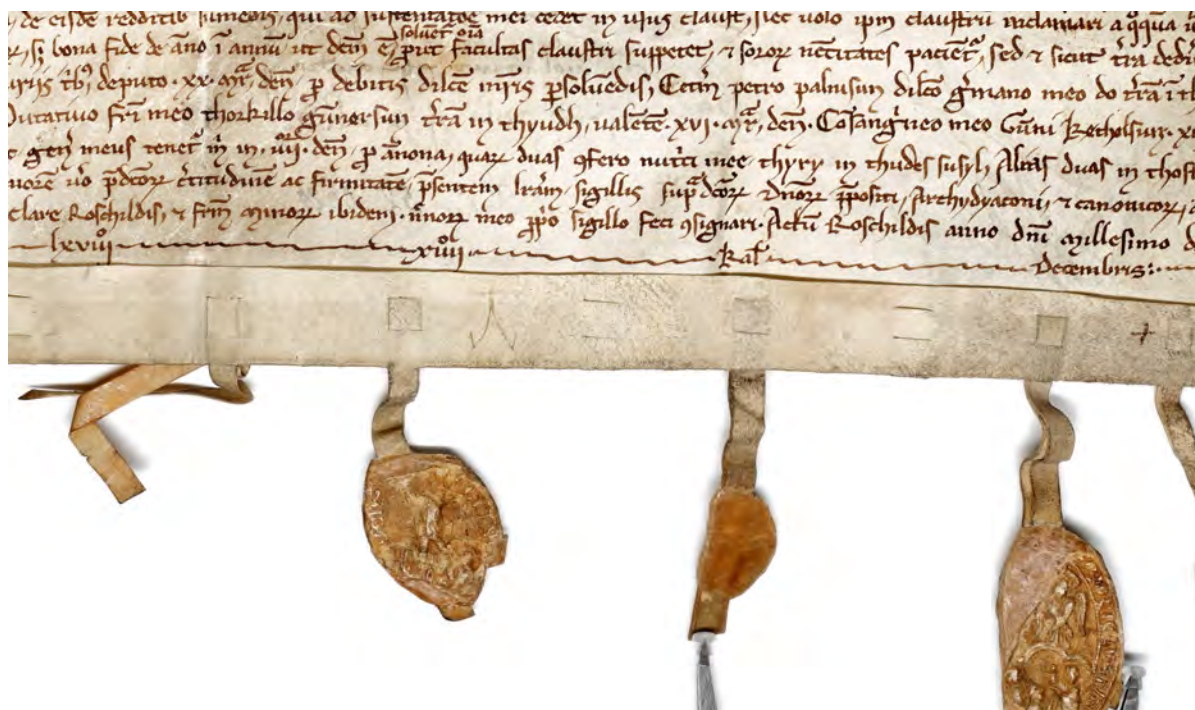 de eisdē redditib sumēdis, qui ad sustentatōe mei cedēt in usus claustͥ, nec volo ipm claustrū inclamari a qͦqua
soluēt oīa
bona fide de āno ī annū ut dcm ē, prout facultas claustri suppetet, ⁊ sororꝝ nccītates paciēt, sed ⁊ sicut tͥra
deputo · xx · mͬ, den̄ · ꝓ debitis dilcē mr̄is ꝑsoluēdis, Cetꝝ petro palnusun dilcō gͥmano meo do tr̄ā ī
putatiuo frī meo thorkillo gūnersun tr̄ā in thyudh, ualētē · xvi · mͬ, den̄ · Cōsangͥneo meo Gūni Ketholsun ·
gen̄ meus tenet den̄ · ꝓ ānona, quaꝝ duas ꝯfero nutͥci mee thyry in thudes susyl, Alias duas in
uō p̄dcōrꝝ c̄titudinē ac firmitatē, p̄sentem lrām sigillis supͣdcōrꝝ dn̄orꝝ p̄positi, Archydyaconi, ⁊ canonicorꝝ,
clare Roschildis, ⁊ frm̄ minorꝝ ibidem · n̄nō meo ꝓpͥo sigillo feci ꝯsignari · Actū Roschildis anno dn̄i millesimo
lxviiiͦ xiiiiͦ kal̄ Decembris :